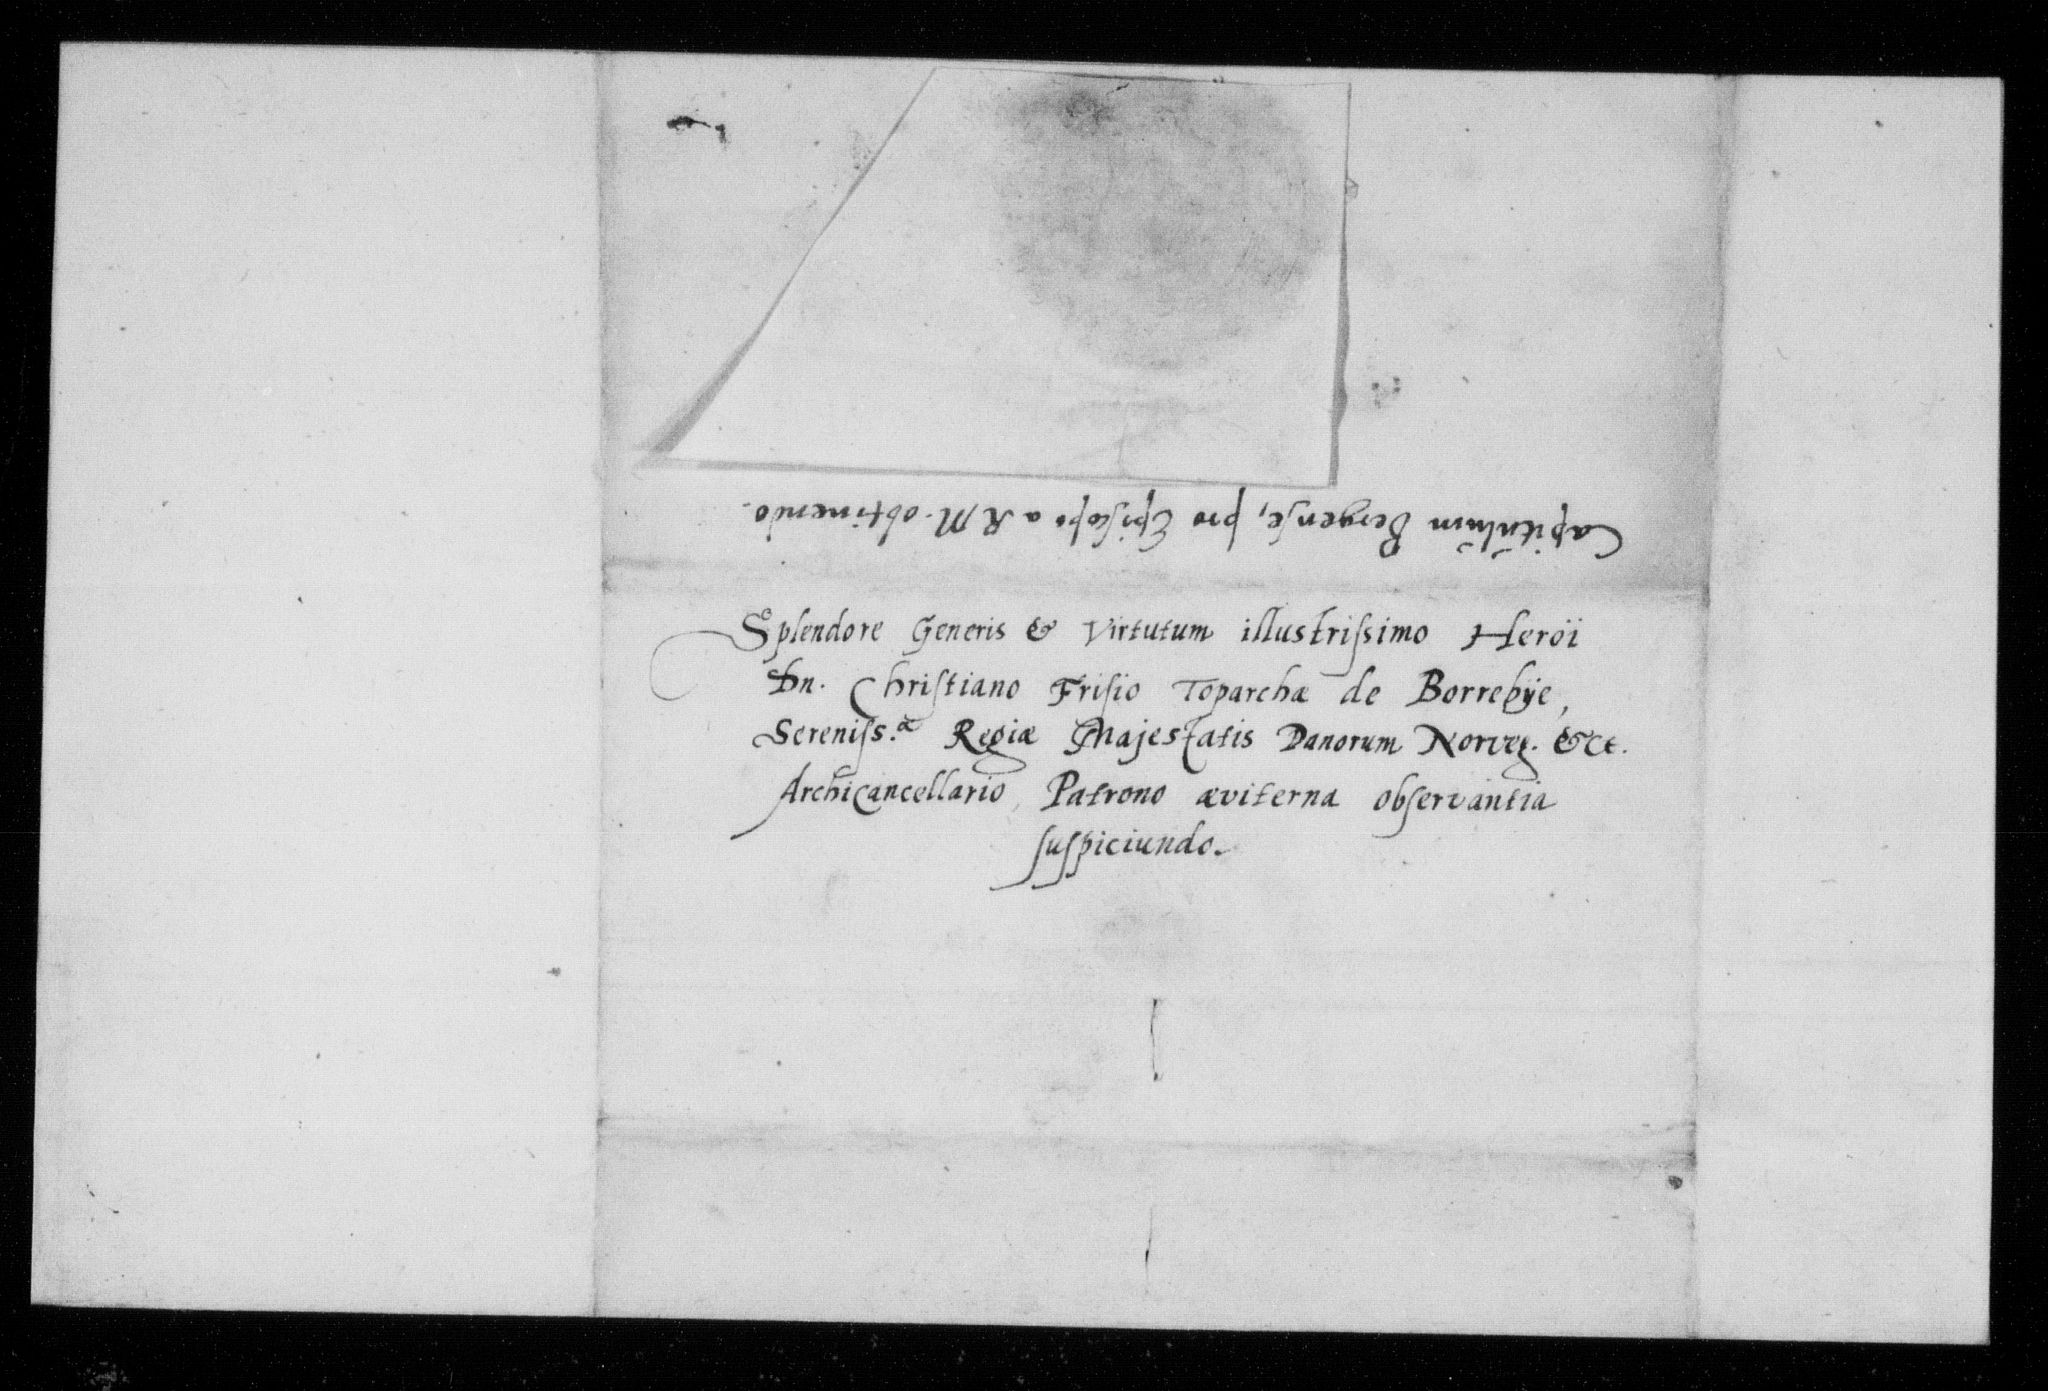 Capitulum Bergense, pro Episcopo a R M. obtinendo.
Splendore Generis & Virtutum illustrissimo Heroi
Dn. Christiano Frisio Toparchæ de Borrebÿe,
Sereniss.æ Regiæ Majestatis Danorum Norveg. &ct.
Archicancellario, Patrono æviterna observantia
suspiciundo.